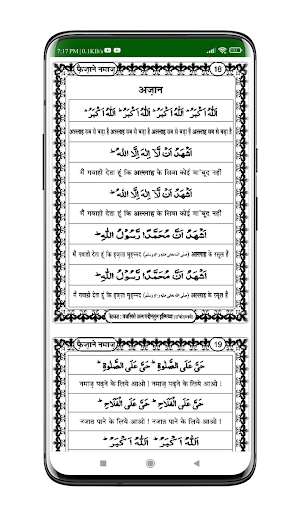 7:17 PM | 0.1KB/s
फ़ैज़ाने नमाज़ 18
अज़ान
اَللّٰهُ اَكْبَرُ ؕ اَللّٰهُ اَكْبَرُ ؕ اَللّٰهُ اَكْبَرُ ؕ اَللّٰهُ اَكْبَرُ ؕ
अल्लाह सब से बड़ा है अल्लाह सब से बड़ा है अल्लाह सब से बड़ा है अल्लाह सब से बड़ा है
اَشْهَدُ اَنْ لَّاۤ اِلٰهَ اِلَّا اللّٰهُ ؕ
मैं गवाही देता हूं कि अल्लाह के सिवा कोई मा'बूद नहीं
اَشْهَدُ اَنْ لَّاۤ اِلٰهَ اِلَّا اللّٰهُ ؕ
मैं गवाही देता हूं कि अल्लाह के सिवा कोई मा'बूद नहीं
اَشْهَدُ اَنَّ مُحَمَّدًا رَّسُوْلُ اللّٰهِ ؕ
मैं गवाही देता हूं कि हज़रत मुहम्मद अल्लाह के रसूल हैं
اَشْهَدُ اَنَّ مُحَمَّدًا رَّسُوْلُ اللّٰهِ ؕ
मैं गवाही देता हूं कि हज़रत मुहम्मद अल्लाह के रसूल हैं
पेशकश : मजलिसे अल मदीनतुल इल्मिय्या
फ़ैज़ाने नमाज़ 19
حَیَّ عَلَی الصَّلٰوةِ ؕ حَیَّ عَلَی الصَّلٰوةِ ؕ
नमाज़ पढ़ने के लिये आओ ! नमाज़ पढ़ने के लिये आओ !
حَیَّ عَلَی الْفَلَاحِ ؕ حَیَّ عَلَی الْفَلَاحِ ؕ
नजात पाने के लिये आओ ! नजात पाने के लिये आओ !
اَللّٰهُ اَكْبَرُ ؕ اَللّٰهُ اَكْبَرُ ؕ